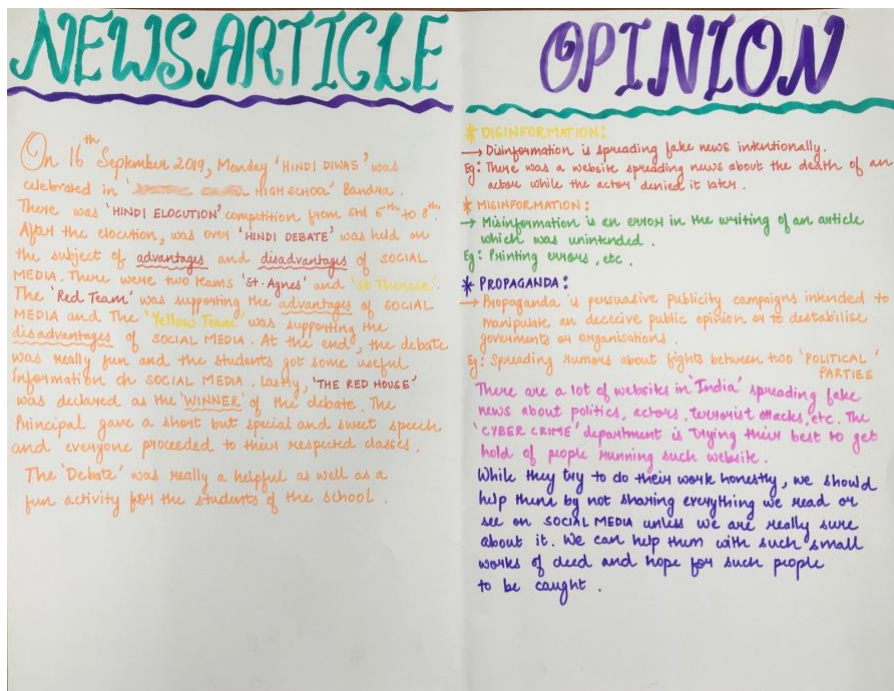 NEWS ARTICLE
On 16th September 2019, Monday 'HINDI DIWAS' was
celebrated in ' HIGH SCHOOL' Bandra.
There was 'HINDI ELOCUTION' competition from std 5th to 8th.
After the elocution, was over 'HINDI DEBATE' was held on
the subject of advantages and disadvantages of SOCIAL
MEDIA. There were two teams 'St. Agnes' and 'St Therese'.
The 'Red Team' was supporting the advantages of SOCIAL
MEDIA and The 'Yellow Team' was supporting the
disadvantages of SOCIAL MEDIA. At the end, the debate
was really fun and the students got some useful
Information on SOCIAL MEDIA. Lastly, 'THE RED HOUSE'
was declared as the 'WINNER' of the debate. The
Principal gave a short but special and sweet speech
and everyone proceeded to their respected classes.
The 'Debate' was really a helpful as well as a
fun activity for the students of the school.
OPINION
* DISINFORMATION:
→ Disinformation is spreading fake news intentionally.
Eg: There was a website spreading news about the death of an
actor while the actor denied it later.
* MISINFORMATION:
→ Misinformation is an error in the writing of an article
which was unintended.
Eg: Printing errors, etc.
* PROPAGANDA:
→ Propaganda is persuasive publicity campaigns intended to
manipulate an deceive public opinion or to destabilise
goverments or organisations.
Eg: Spreading rumors about fights between two 'POLITICAL'
PARTIES
There are a lot of websites in 'India' spreading fake
news about politics, actors, terrorist attacks, etc. The
'CYBER CRIME' department is trying their best to get
hold of people running such website.
While they try to do their work honestly, we should
help them by not sharing everything we read or
see on SOCIAL MEDIA unless we are really sure
about it. We can help them with such small
works of deed and hope for such people
to be caught.